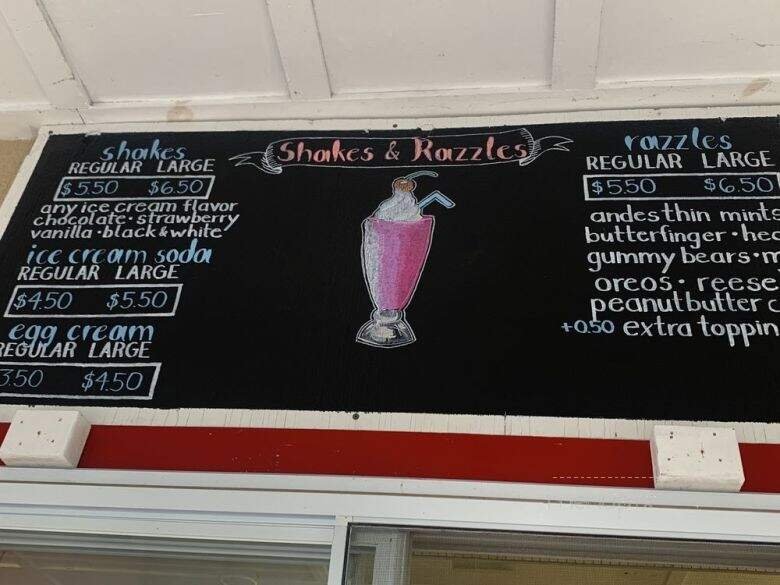 Shakes & Razzles
shakes
REGULAR LARGE
$5.50 $6.50
any ice cream flavor
chocolate • strawberry
vanilla • black & white
ice cream soda
REGULAR LARGE
$4.50 $5.50
egg cream
REGULAR LARGE
3.50 $4.50
razzles
REGULAR LARGE
$5.50 $6.50
andes thin mint
butterfinger •
gummy bears •
oreos • reese
peanut butter
+0.50 extra toppin